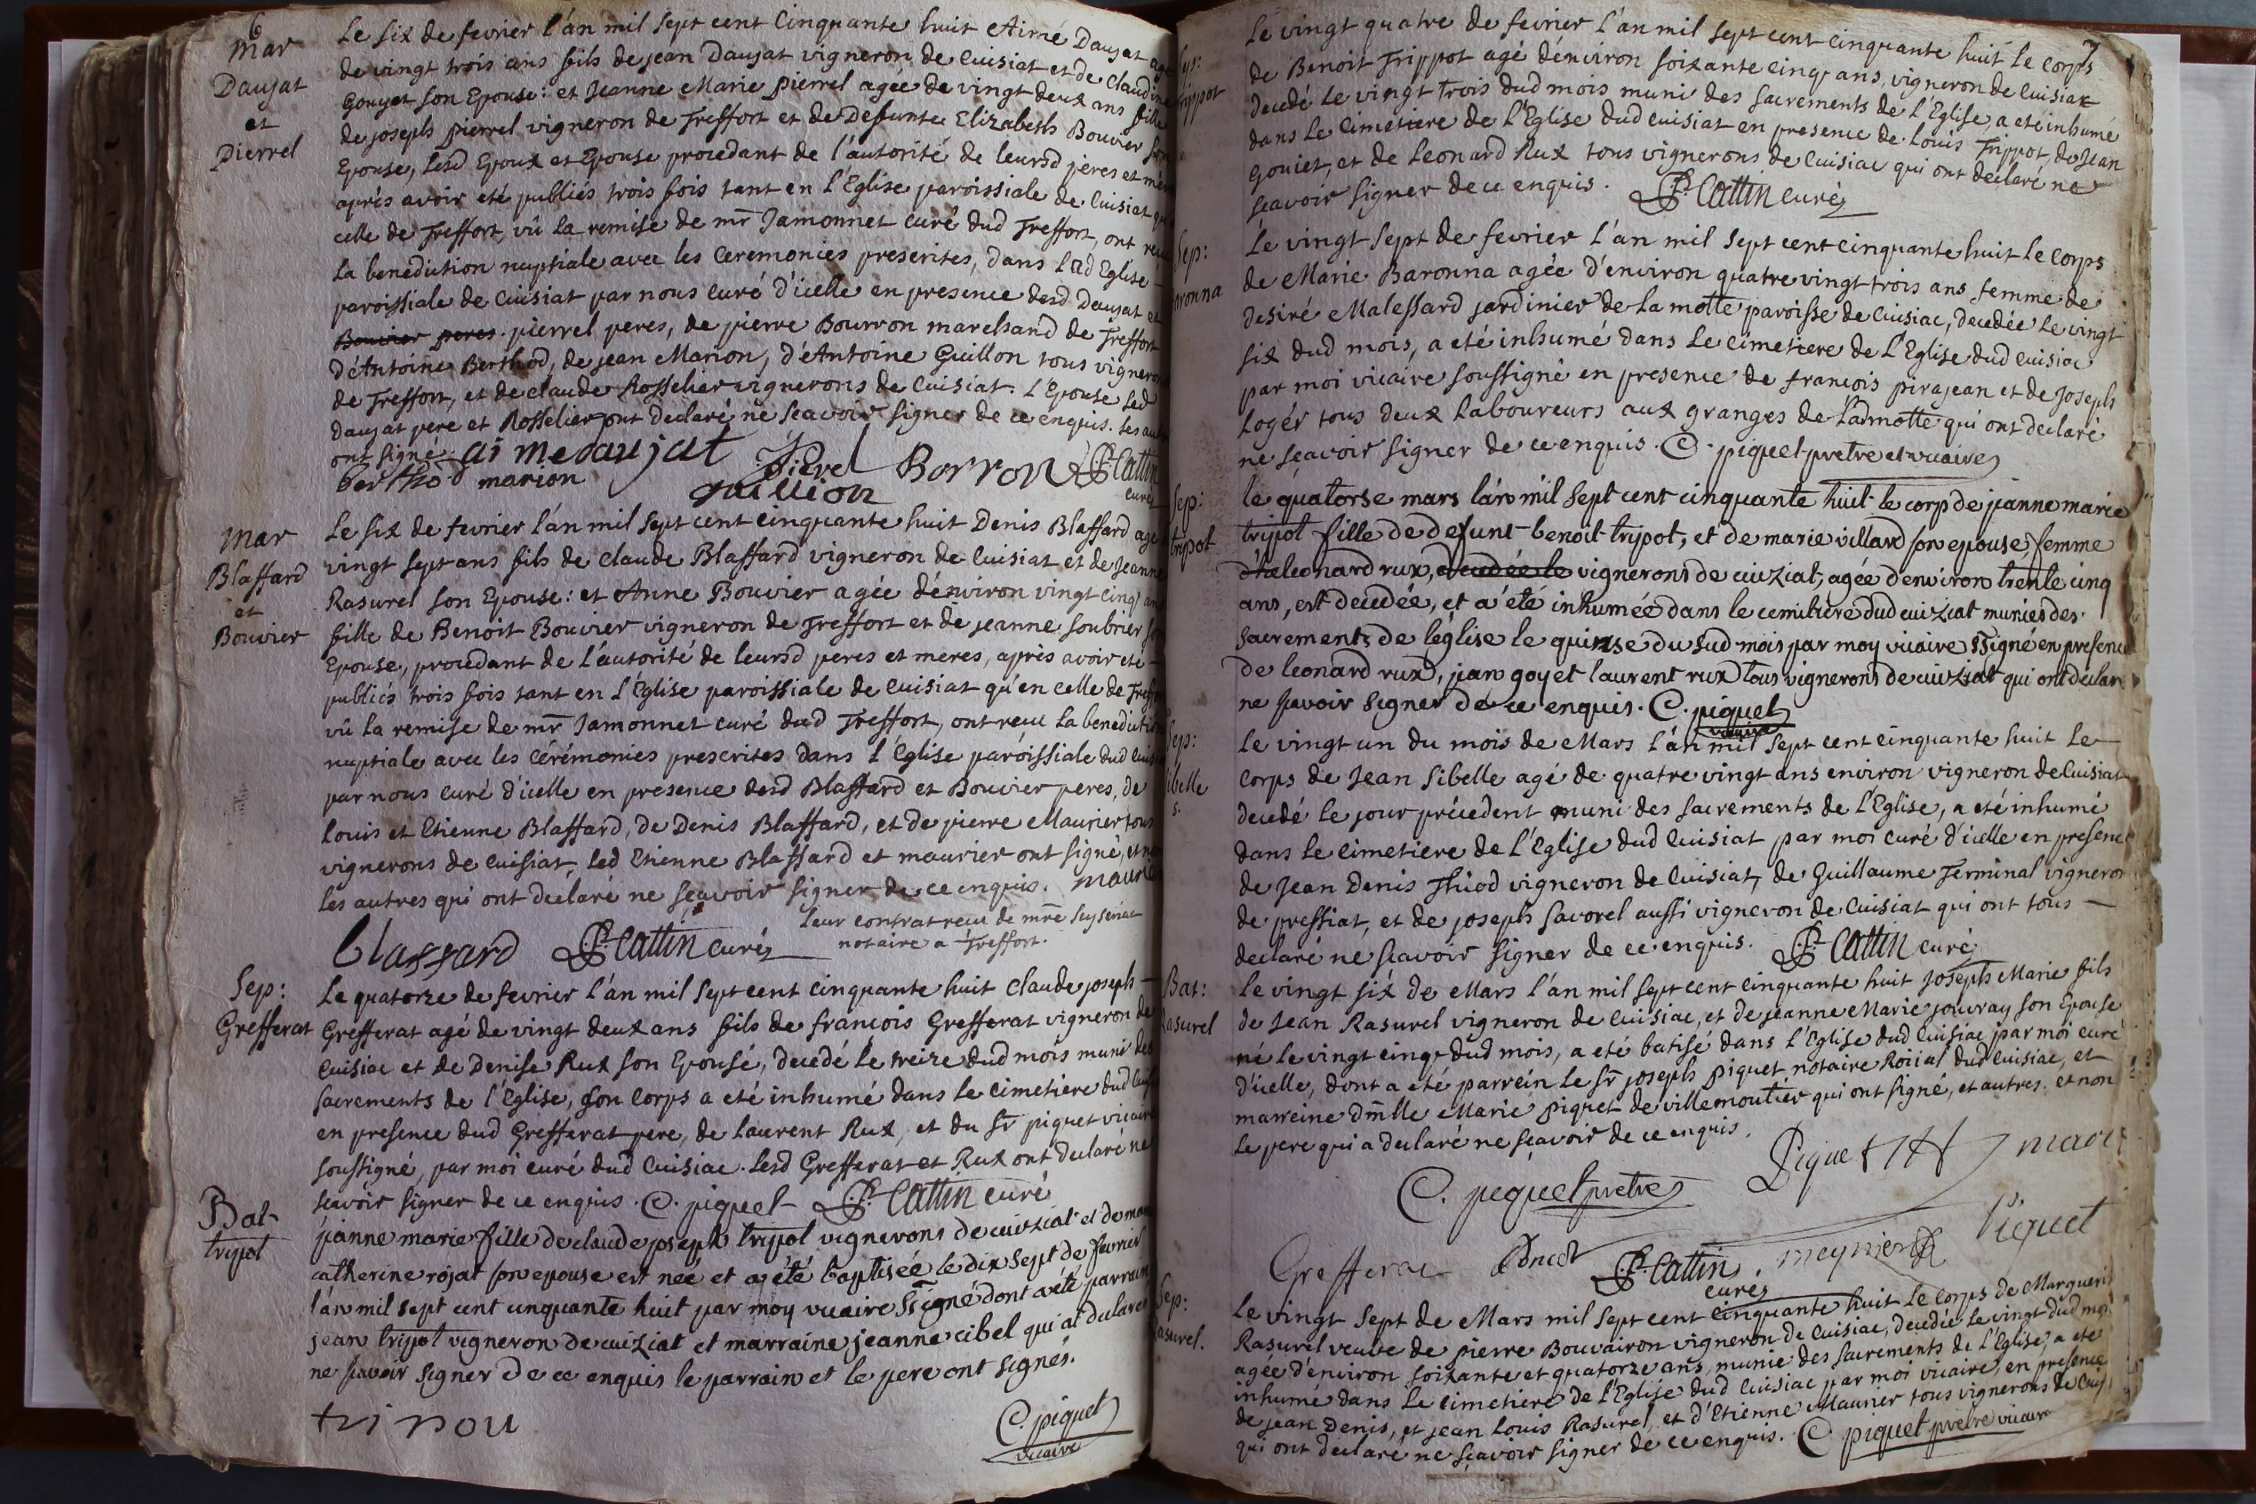 6
Mar
Daujat
et
Pierrel
Le six de fevrier l'an mil sept cent cinquante huit Aimé Daujat agé
de vingt trois ans fils de jean Daujat vigneron de Cuisiat et de Claudine
Gouyet son Epouse: et Jeanne Marie pierrel agée de vingt deux ans fille
de joseph pierrel vigneron de Treffort et de Defunte Elizabeth Bouvier son
Epouse, lesd Epoux et Epouse procedant de l'autorité de leursd peres et mere
aprés avoir eté publiés trois fois tant en l'Eglise paroissiale de Cuisiat qu
celle de Treffort, vû la remise de mr Jamonnet curé dud Treffort, ont reçu
la benediction nuptiale avec les Ceremonies prescrites, dans lad Eglise
paroissiale de Cuisiat par nous curé d'icelle en presence desd Daujat et
Bouvier peres pierrel peres, de pierre Bourron marchand de Treffort
d'Antoine Berthod, de jean Marion, d'Antoine Guillon tous vignerons
de Treffort, et de claude Rosselier vignerons de Cuisiat. l'Epouse led
Daujat pere et Rosselier ont declaré ne scavoir signer de ce enquis. les autres
ont signé. aime daujat pierel Borron Cattin
berthod marion guillion curé
Mar
Blaffard
et
Bouvier
Le six de fevrier l'an mil sept cent cinquante huit Denis Blaffard agé
vingt sept ans fils de Claude Blaffard vigneron de Cuisiat et de Jeanne
Rasurel son Epouse: et Anne Bouvier agée d'environ vingt cinq ans
fille de Benoit Bouvier vigneron de Treffort et de jeanne Soubrier son
Epouse, procedant de l'autorité de leursd peres et meres, aprés avoir eté
publiés trois fois tant en l'Eglise paroissiale de Cuisiat qu'en celle de Treffort
vû la remise de mr Jamonnet curé dud Treffort, ont reçu la benediction
nuptiale avec les Cérémonies prescrites dans l'Eglise paroissiale dud Cuisiat
par nous curé d'icelle en presence desd Blaffard et Bouvier peres, de
louis et Etienne Blaffard, de Denis Blaffard, et de pierre Maurier tous
vignerons de Cuisiat, led Etienne Blaffard et maurier ont signé, et non
les autres qui ont declaré ne scavoir signer de ce enquis. maurier
leur contrat reçu de mre Seyseriat
notaire a Treffort.
blaffard Cattin curé
Sep:
Grefferat
Le quatorze de fevrier l'an mil sept cent cinquante huit Claude joseph
Grefferat agé de vingt deux ans fils de françois Grefferat vigneron de
Cuisiac et de Denise Rux son Epouse, decedé le treize dud mois muni des
sacrements de l'Eglise, son corps a eté inhumé dans le cimetiere dud Cuisiac
en presence dud Grefferat pere, de laurent Rux, et du Sr piquet vicaire
soussigné, par moi curé dud Cuisiac. lesd Grefferat et Rux ont declaré ne
scavoir signer de ce enquis. C. piquet Cattin curé
Bat
tripot
jeanne marie fille de claude joseph tripot vignerons de cuiziat et de marie
catherine rojat son epouse est neé et a été baptiséé le dix sept de fevrier
l'an mil sept cent cinquante huit par moy vicaire ssigné dont a été parrain
jean tripot vigneron de cuiziat et marraine jeanne cibel qui at declaré
ne scavoir signer de ce enquis le parrain et le pere ont signés.
tripou
C. piquet
vicaire
7
Sep:
Trippot
Le vingt quatre de fevrier l'an mil sept cent cinquante huit le corps
de Benoit Trippot agé d'environ soixante cinq ans, vigneron de Cuisiat
decedé le vingt trois dud mois muni des sacrements de l'Eglise, a eté inhumé
dans le cimetiere de l'Eglise dud Cuisiat en presence de louis Trippot, de Jean
Goniet, et de Leonard Rux tous vignerons de Cuisiac qui ont declaré ne
scavoir signer de ce enquis. Cattin curé
Sep:
Baronna
Le vingt sept de fevrier l'an mil sept cent cinquante huit le corps
de Marie Baronna agée d'environ quatre vingt trois ans femme de
desiré Malessard jardinier de la motte paroisse de Cuisiac, decedée le vingt
six dud mois, a eté inhumé dans le cimetiere de l'Eglise dud Cuisiac
par moi vicaire soussigné en presence de francois pirajean et de Joseph
Logér tous deux laboureurs aux granges de lad motte qui ont declaré
ne scavoir signer de ce enquis. C. piquet pretre et vicaire
Sep:
tripot
le quatorse mars l'an mil sept cent cinquante huit le corp de jeanne marie
tripot fille de defunt benoit tripot, et de marie villard son epouse, femme
de leonard rux, decedée le vignerons de cuiziat, agée d'environ trente cinq
ans, est decedée, et a été inhumée dans le cemitiere dud cuiziat munies des
sacrements de léglise le quinse du sud mois par moy vicaire ssigné en presence
de leonard rux, jean goyet laurent rux tous vignerons de cuiziat qui ont declaré
ne scavoir signer de ce enquis. C. piquet
vicaire
Sep:
Sibelle
s.
Le vingt un du mois de Mars l'an mil sept cent cinquante huit le
corps de Jean Sibelle agé de quatre vingt ans environ vigneron de Cuisiat
decedé le jour précedent muni des sacrements de l'Eglise, a eté inhumé
dans le cimetiere de l'Eglise dud Cuisiat par moi curé d'icelle en presence
de Jean Denis Thiod vigneron de Cuisiat, de Guillaume Terminal vigneron
de pressiat, et de joseph Savorel aussi vigneron de Cuisiat qui ont tous
declaré ne scavoir signer de ce enquis. Cattin curé
Bat:
Rasurel
Le vingt six de Mars l'an mil sept cent cinquante huit Joseph Marie fils
de Jean Rasurel vigneron de Cuisiac, et de jeanne Marie jouvray son Epouse
né le vingt cinq dud mois, a eté batisé dans l'Eglise dud Cuisiac par moi curé
d'icelle, dont a été parrein le Sr joseph piquet notaire Roiial dud Cuisiac, et
marreine dmlle Marie piquet de villemoutier qui ont signé, et autres. et non
le pere qui a declaré ne scavoir de ce enquis.
C. piquet pretre Piquet marie
Piquet
Grefferat Cattin meynier
curé
Sep:
Rasurel.
Le vingt sept de Mars mil sept cent cinquante huit le corps de Marguerit
Rasurel veuve de pierre Bouvairon vigneron de Cuisiac, decedée le vingt dud mois
agée d'environ soixante et quatorze ans, munie des sacrements de l'Eglise, a eté
inhumé dans le cimetiere de l'Eglise dud Cuisiac par moi vicaire, en presence
de jean Denis, et jean louis Rasurel, et d'Etienne Maurier tous vignerons de Cuis
qui ont declaré ne scavoir signer de ce enquis. C. piquet pretre vicaire